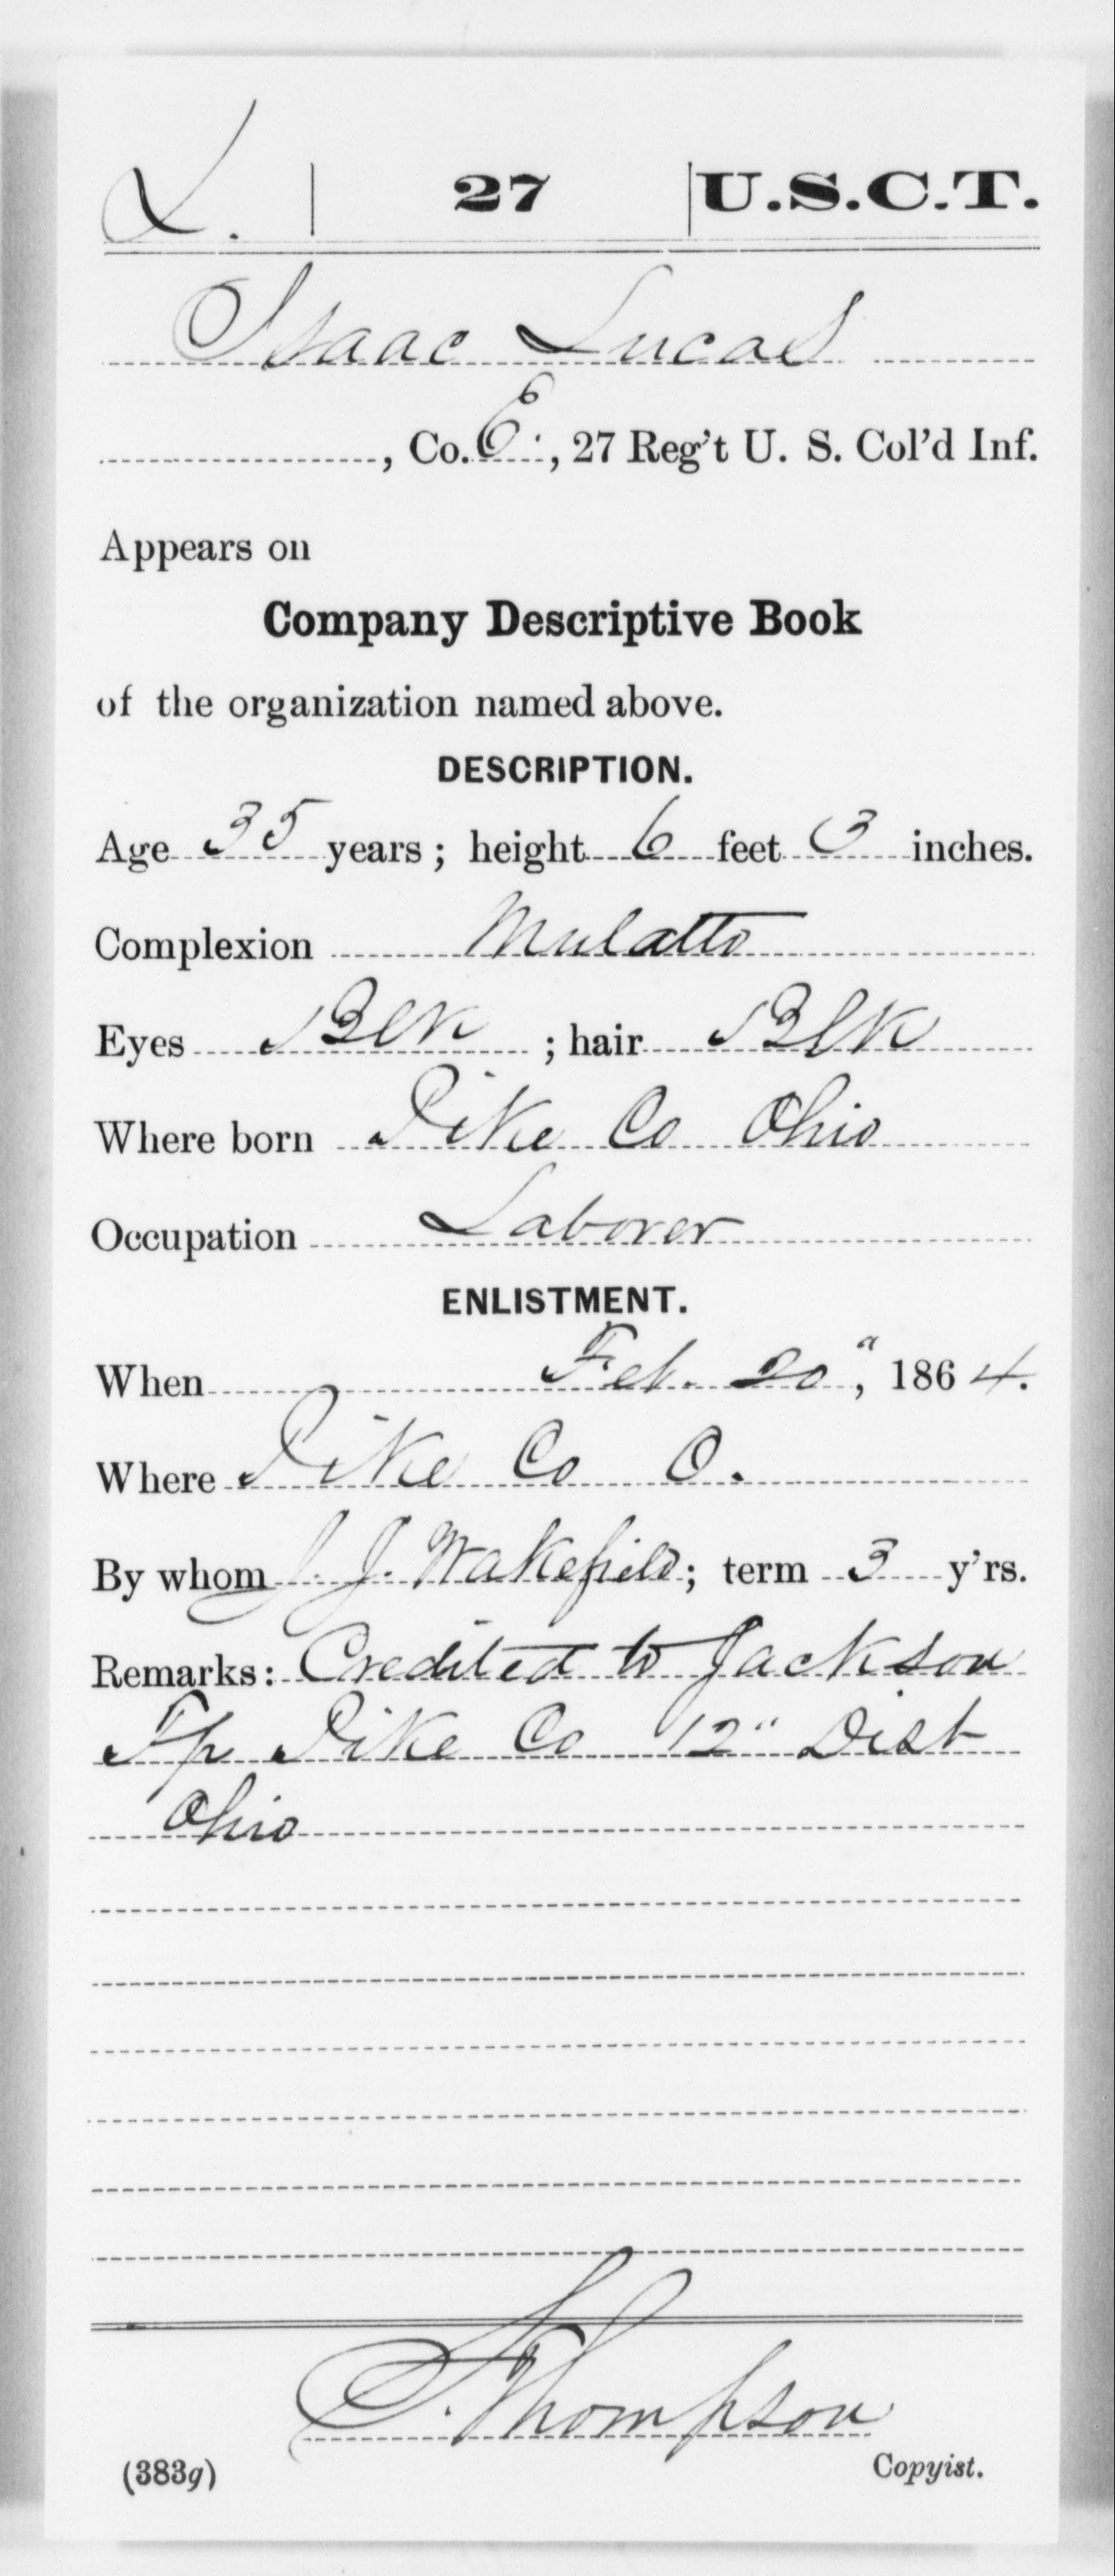 L. | 27 | U.S.C.T.
Isaac Lucas
, Co. E., 27 Reg't U. S. Col'd Inf.
Appears on
Company Descriptive Book
of the organization named above.
DESCRIPTION.
Age 35 years; height 6 feet 3 inches.
Complexion Mulatto
Eyes Blk ; hair Blk
Where born Pike Co Ohio
Occupation Laborer
ENLISTMENT.
When Feb. 20", 1864.
Where Pike Co O.
By whom J. J. Wakefield; term 3 y'rs.
Remarks: Credited to Jackson
Tp Pike Co 12" Dist
Ohio
S. Thompson
(383g) Copyist.